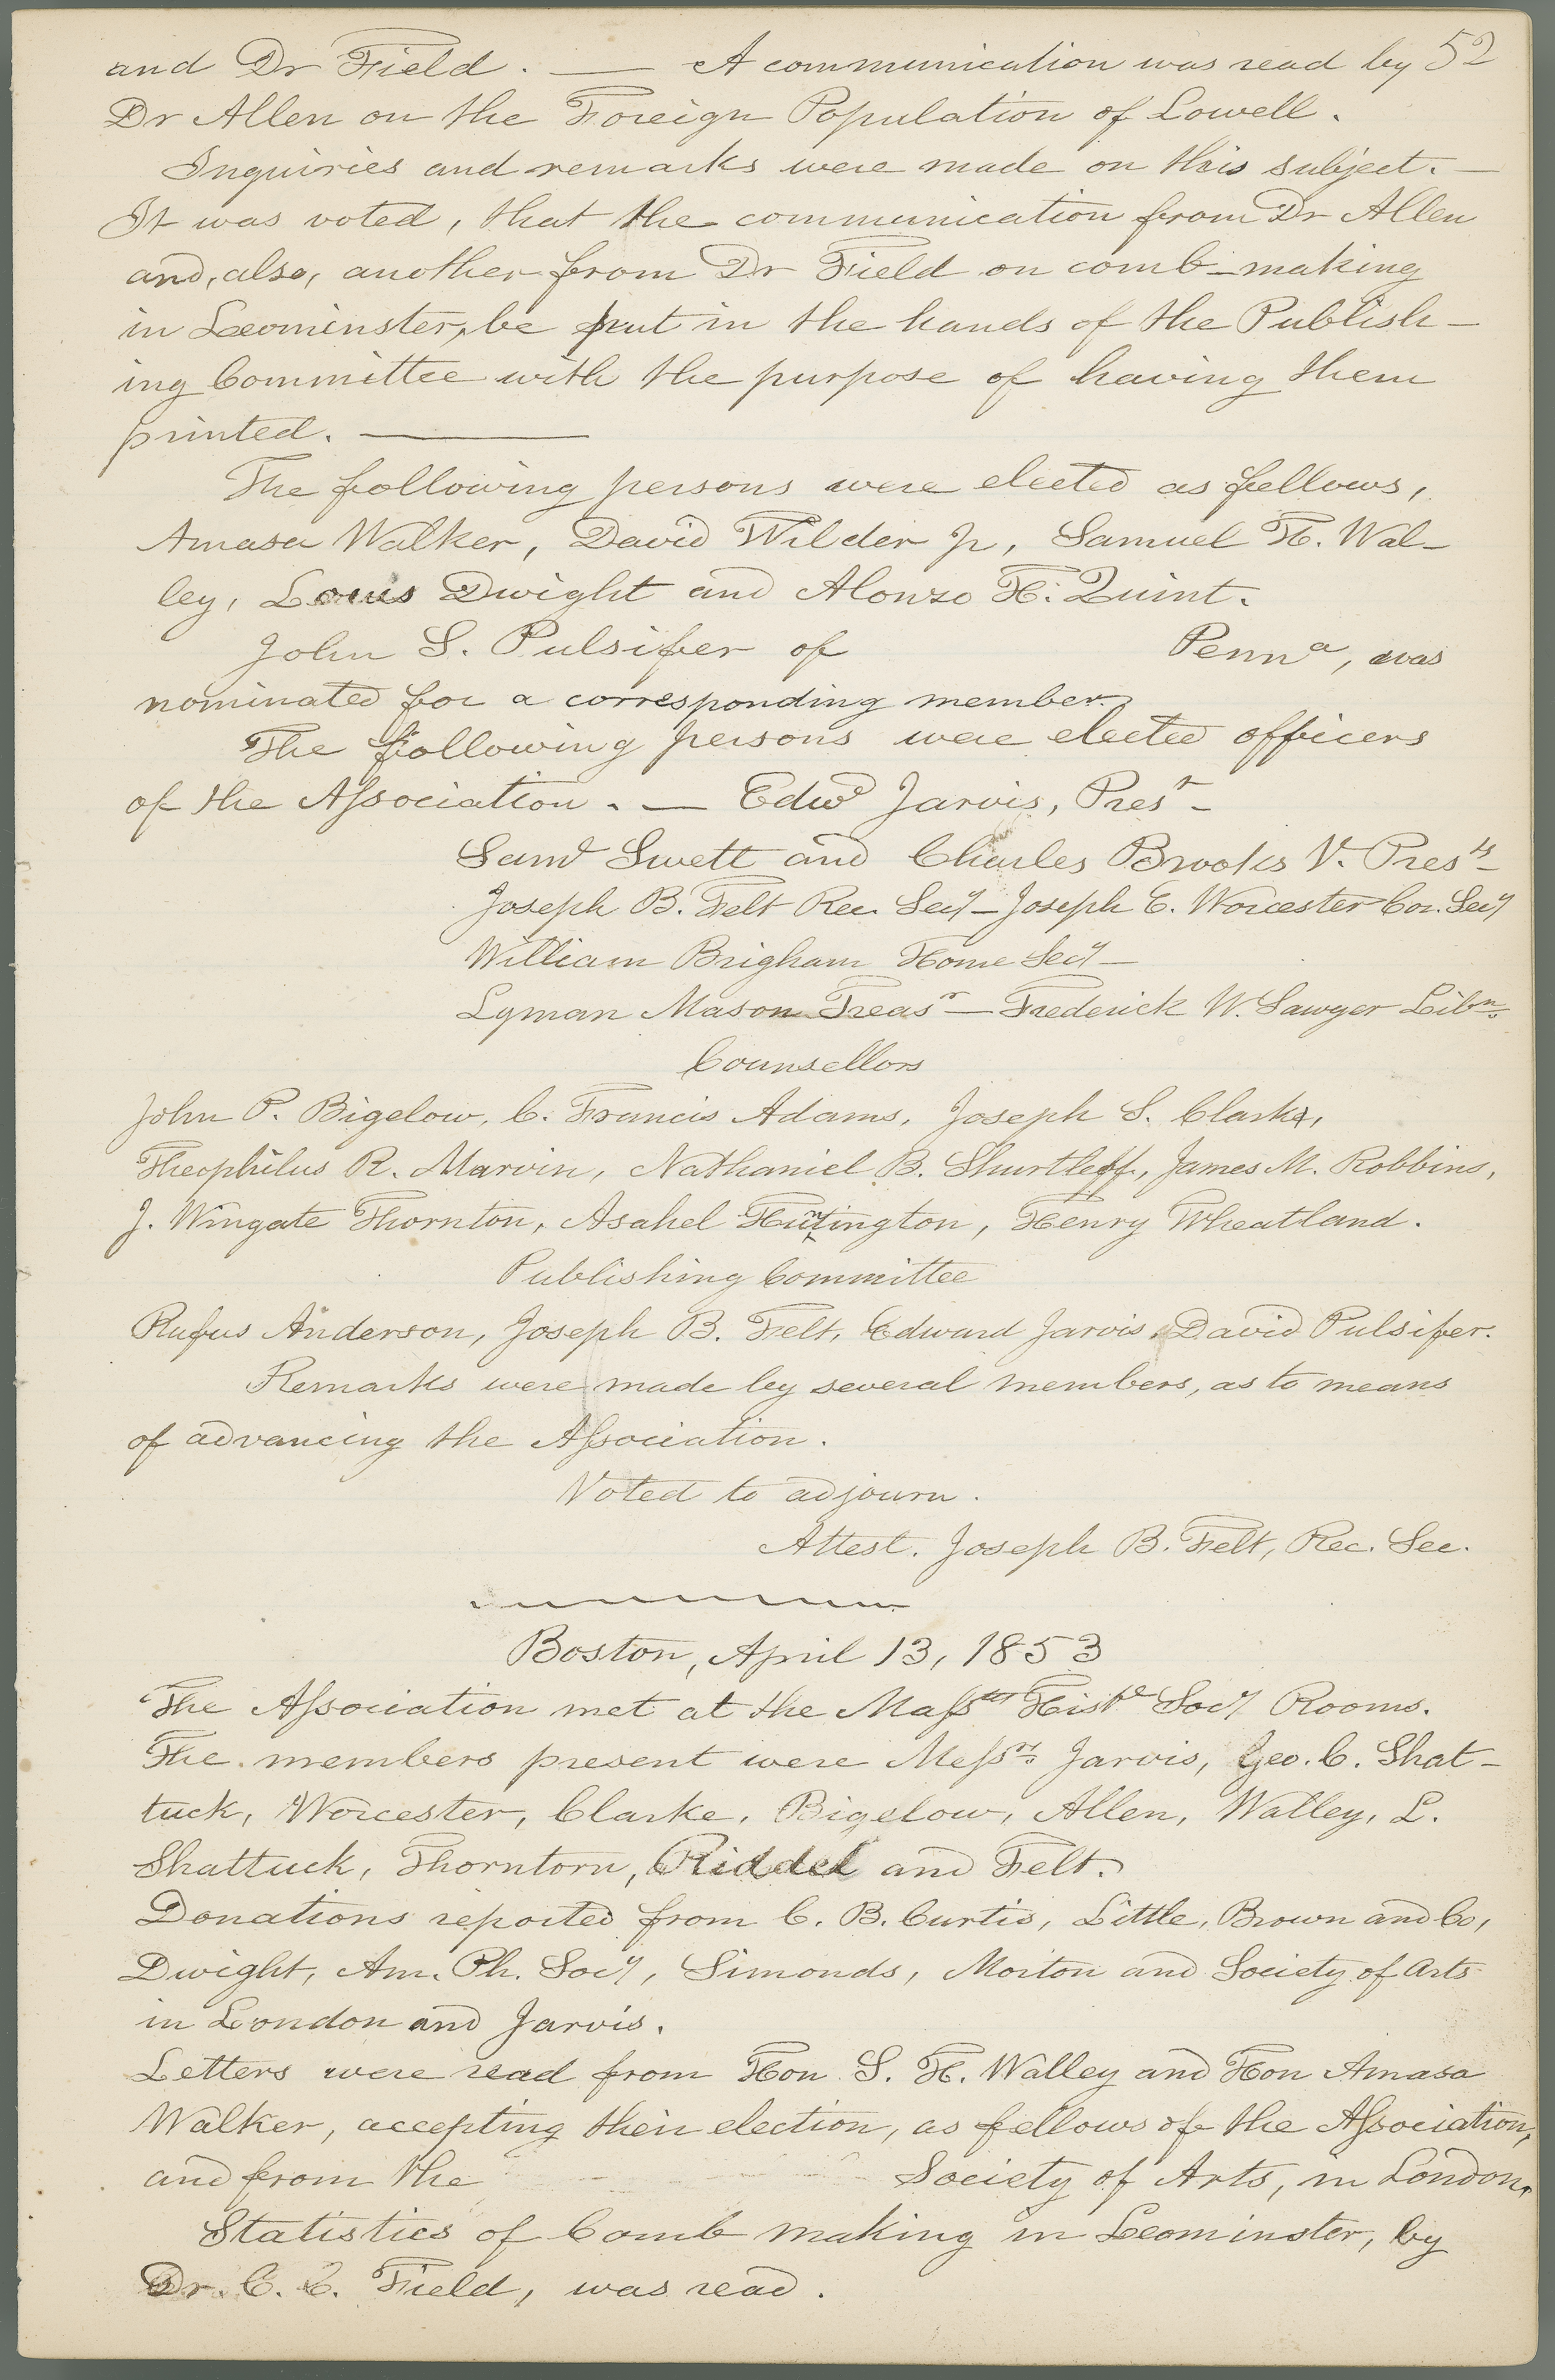 and Dr Field. — A communication was read by 52
Dr Allen on the Foreign Population of Lowell.
Inquiries and remarks were made on this subject. —
It was voted, that the communication from Dr Allen
and, also, another from Dr Field on comb-making
in Leominster, be put in the hands of the Publish-
ing Committee with the purpose of having them
printed. —
The following persons were elected as fellows,
Amasa Walker, David Wilder Jr, Samuel H. Wal-
ley, Louis Dwight and Alonzo H. Quint.
John S. Pulsifer of Pennª, was
nominated for a corresponding member.
The following persons were elected officers
of the Association. — Edwd Jarvis, Prest -
Saml Swett and Charles Brooks V. Prests -
Joseph B. Felt Rec. Secy - Joseph E. Worcester Cor. Secy
William Brigham Home Secy -
Lyman Mason Treasr - Frederick W. Sawyer Libn.
Counsellors
John P. Bigelow, C. Francis Adams, Joseph S. Clark,
Theophilus R. Marvin, Nathaniel B. Shurtleff, James M. Robbins,
J. Wingate Thornton, Asahel Huntington, Henry Wheatland.
Publishing Committee
Rufus Anderson, Joseph B. Felt, Edward Jarvis, David Pulsifer.
Remarks were made by several members, as to means
of advancing the Association.
Voted to adjourn.
Attest. Joseph B. Felt, Rec. Sec.
Boston, April 13, 1853
The Association met at the Masstts Histl Socy Rooms.
The members present were Messrs. Jarvis, Geo. C. Shat-
tuck, Worcester, Clarke, Bigelow, Allen, Walley, L.
Shattuck, Thorntorn, Riddel and Felt.
Donations reported from C. B. Curtis, Little, Brown and Co,
Dwight, Am. Ph. Socy, Simonds, Morton and Society of Arts
in London and Jarvis.
Letters were read from Hon S. H. Walley and Hon Amasa
Walker, accepting their election, as fellows of the Association,
and from the Society of Arts, in London.
Statistics of Comb making in Leominster, by
Dr. C. C. Field, was read.